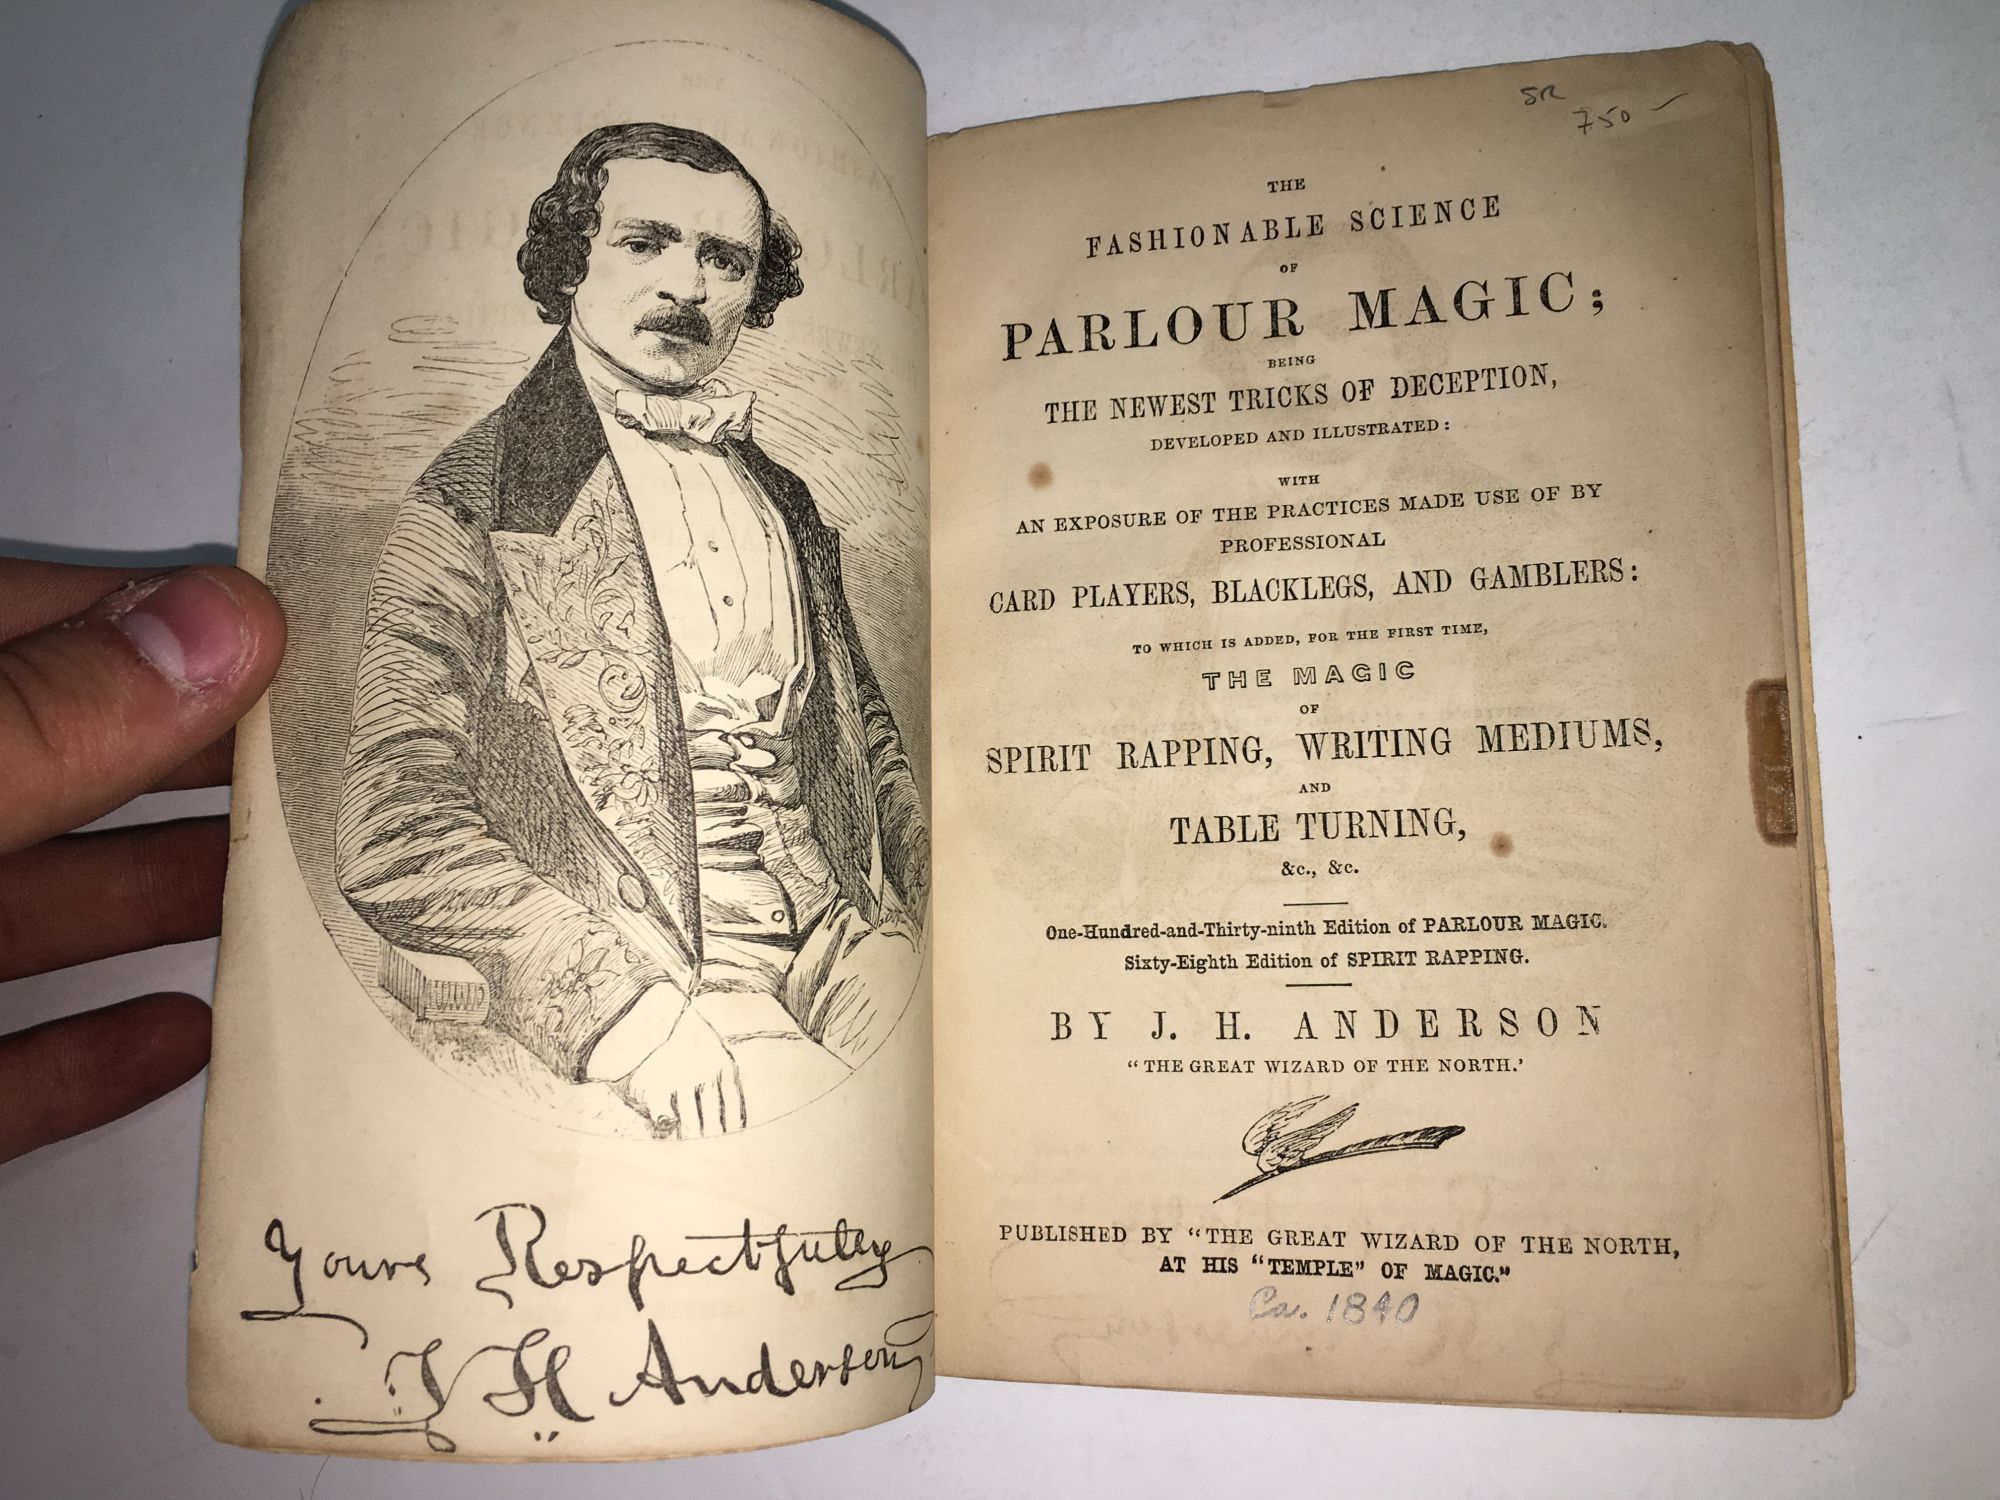 Yours Respectfully
J H Anderson
SR
750 –
THE
FASHIONABLE SCIENCE
OF
PARLOUR MAGIC;
BEING
THE NEWEST TRICKS OF DECEPTION,
DEVELOPED AND ILLUSTRATED:
WITH
AN EXPOSURE OF THE PRACTICES MADE USE OF BY
PROFESSIONAL
CARD PLAYERS, BLACKLEGS, AND GAMBLERS:
TO WHICH IS ADDED, FOR THE FIRST TIME,
THE MAGIC
OF
SPIRIT RAPPING, WRITING MEDIUMS,
AND
TABLE TURNING,
&c., &c.
One-Hundred-and-Thirty-ninth Edition of PARLOUR MAGIC.
Sixty-Eighth Edition of SPIRIT RAPPING.
BY J. H. ANDERSON
"THE GREAT WIZARD OF THE NORTH.'
PUBLISHED BY "THE GREAT WIZARD OF THE NORTH,
AT HIS "TEMPLE" OF MAGIC."
Ca. 1840